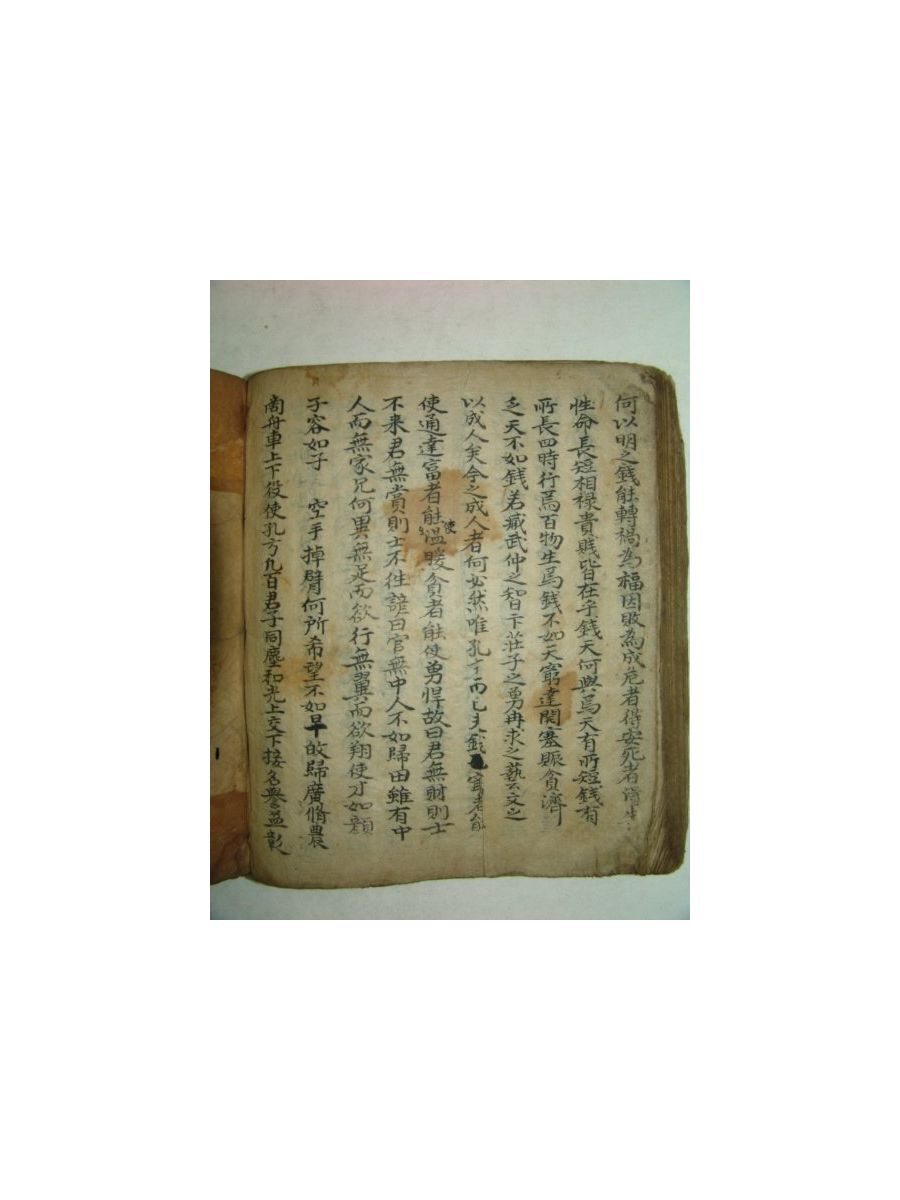 何以明之錢能轉禍為福因敗為成危者得安死者
性命長短相祿貴賤皆在乎錢天何與焉天有所短錢有
所長四時行焉百物生焉錢不如天窮達開塞賑貧濟
乏天不如錢若臧武仲之智卞莊子之勇冉求之藝文之
以成人矣今之成人者何必然唯孔方而已夫錢窮者能
使通達富者能使溫暖貧者能使勇悍故曰君無財則士
不来君無賞則士不往諺曰官無中人不如歸田雖有中
人而無家兄何異無足而欲行無翼而欲翔使才如顏
子容如子 空手掉臂何所希望不如早歸廣脩農
商舟車上下役使孔方凡百君子同塵和光上交下接名譽益彰